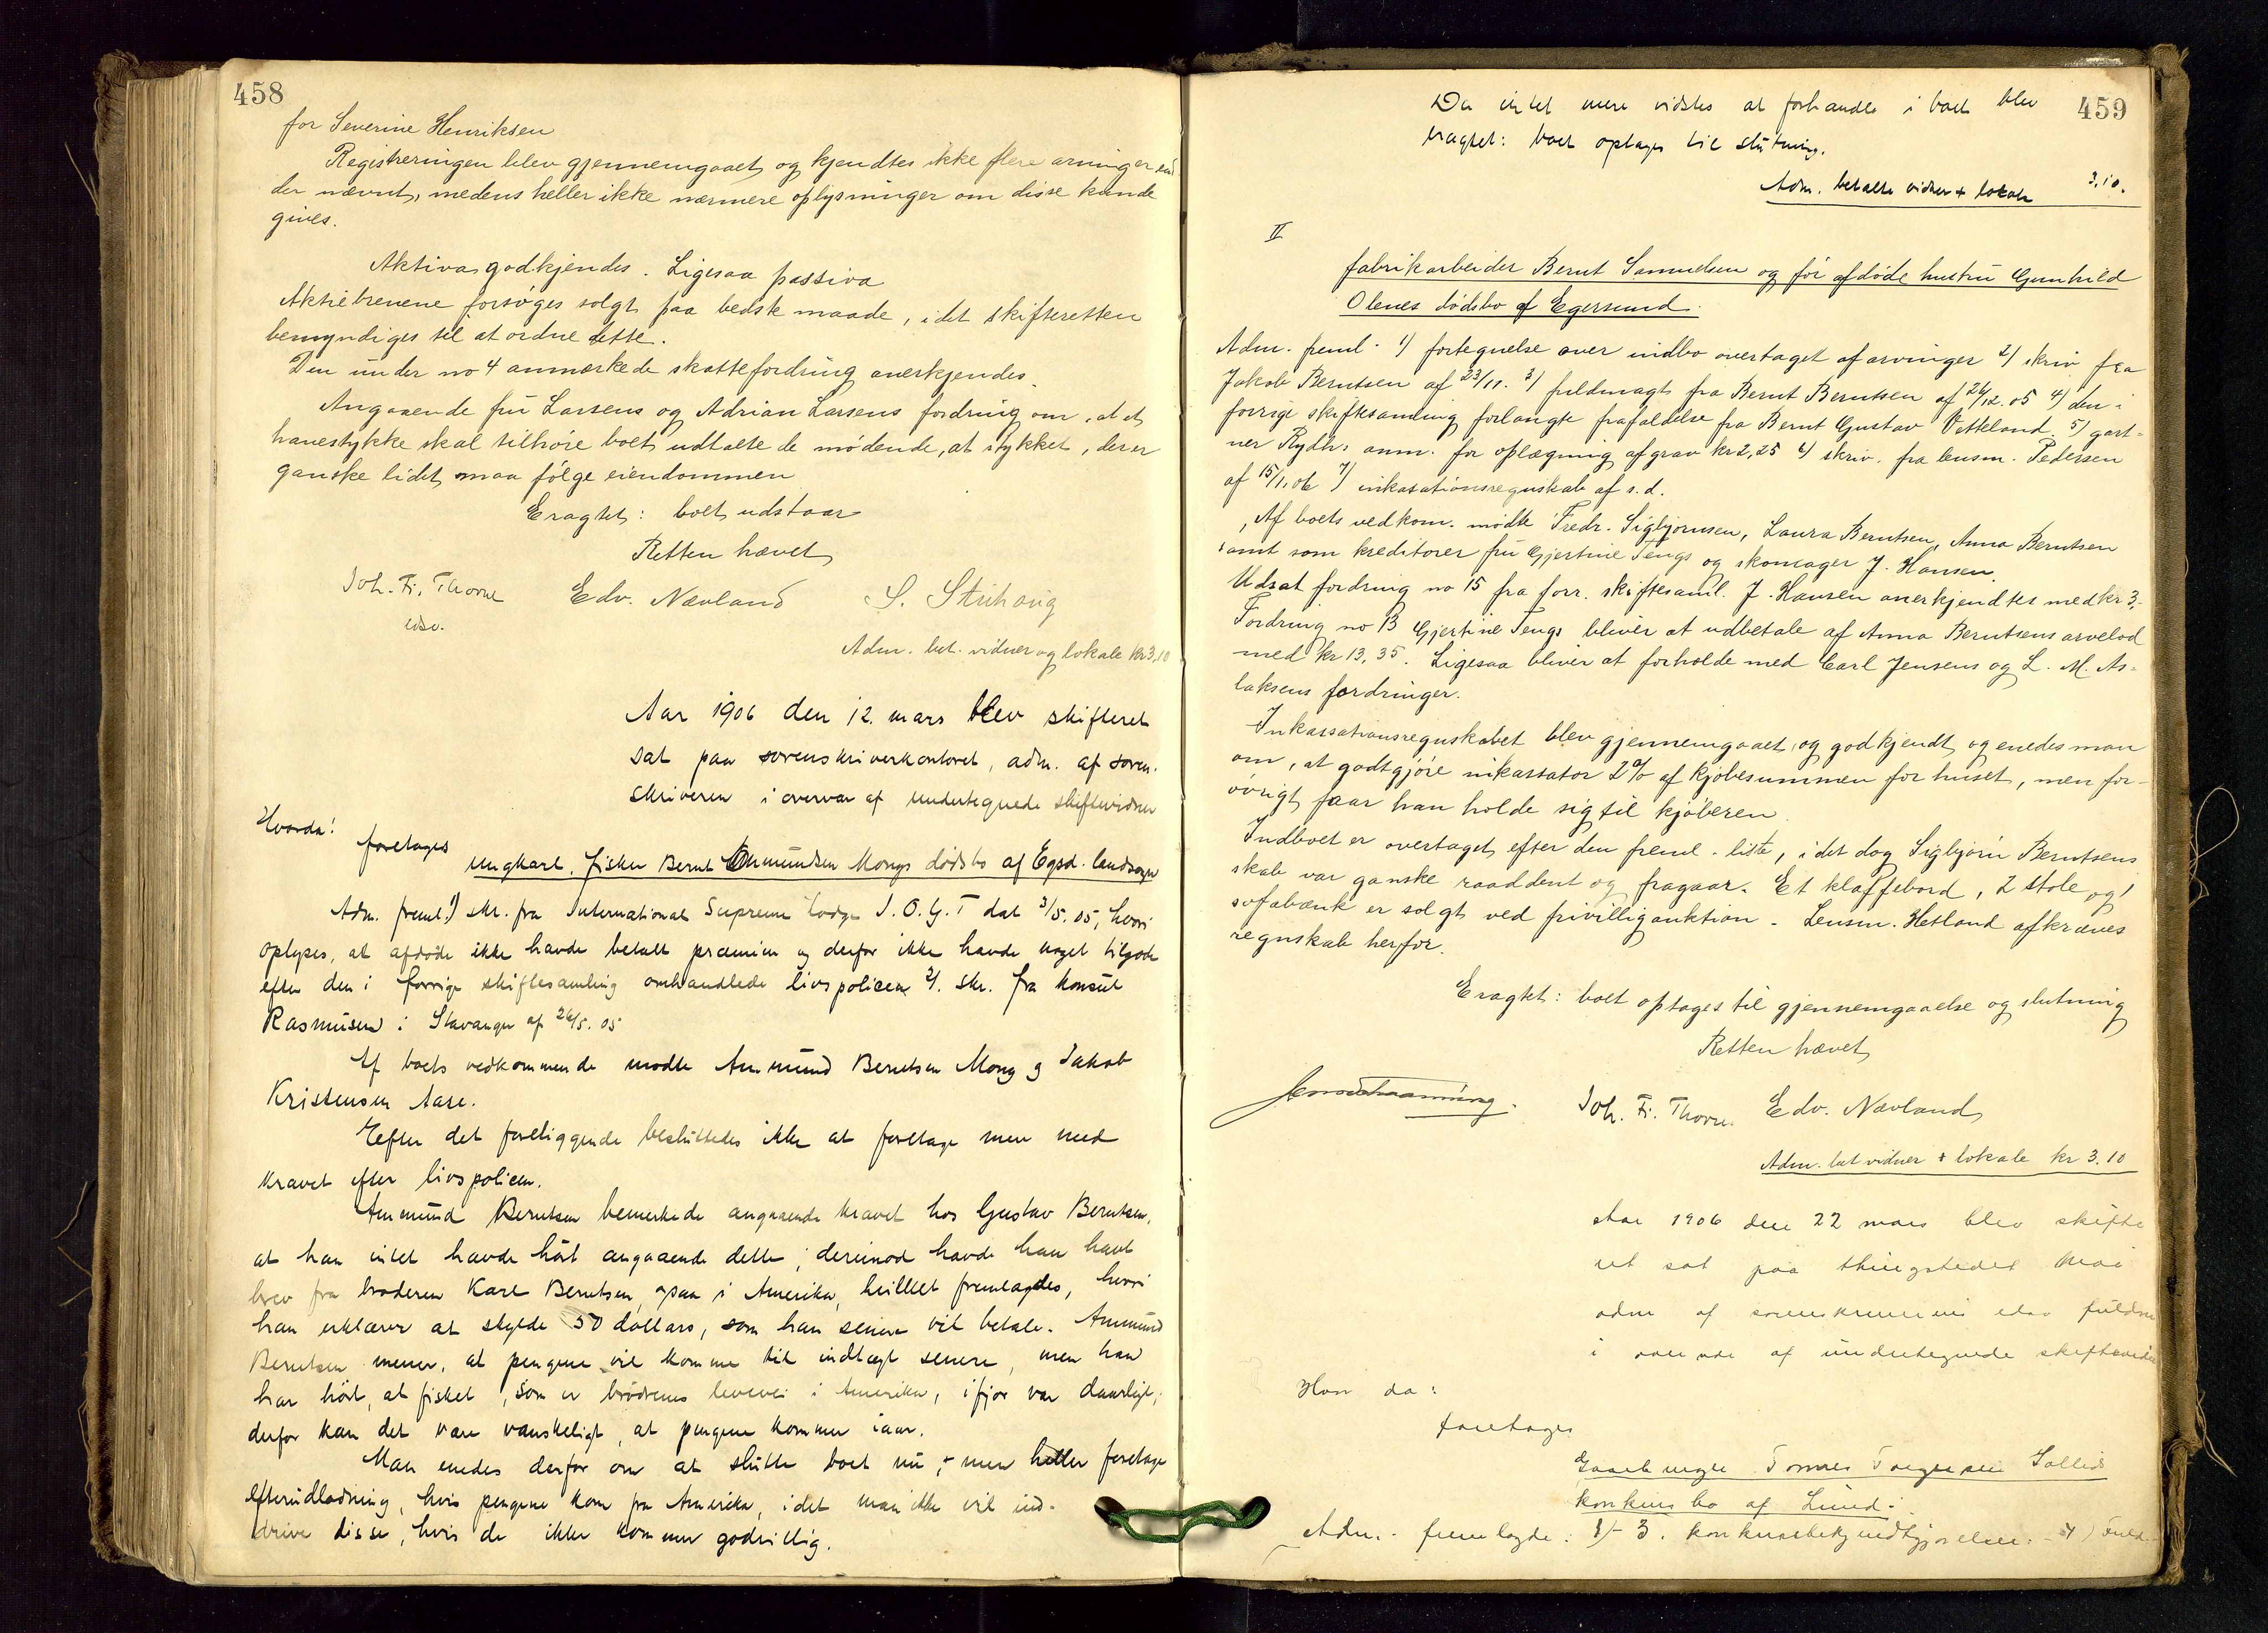 458
for Severine Henriksen
Registreringen blev gjennemgaaet og kjendtes ikke flere arvinger end
der nævnt, medens heller ikke nærmere oplysninger om disse kunde
gives.
Aktiva godkjendes. Ligesaa passiva
Aktiebrevene forsøges solgt paa bedste maade, idet skifteretten
bemyndiges til at ordne dette.
Den under no 4 anmærkede skattefordring anerkjendes.
Angaaende fru Larsens og Adrian Larsens fordring om, at et
havestykke skal tilhøre boet udtalte de mødende, at stykket, der er
ganske lidet maa følge eiendommen
Eragtet: boet udstaar
Retten hævet
Joh. Fr. Thorne Edv. Nævland S. Stuhaug
edsv.
Adm. bet. vidner og lokale kr 3,10
Aar 1906 den 12. mars blev skifteret
sat paa sorenskriverkontoret, adm. af soren-
skriveren i overvær af undertegnede skiftevidner
Hvorda:
foretages
ungkarl, fisker Bernt Ommundsen Mongs dødsbo af Egsd. landsogn
Adm. freml. 1) skr. fra International Supreme Lodge I.O.G.T dat 3/5. 05, hvori
oplyses, at afdøde ikke havde betalt præmien og derfor ikke havde noget tilgode
efter den i forrige skiftesamling omhandlede livspolicen 2). skr. fra konsul
Rasmussen i Stavanger af 26/5. 05
Af boets vedkommende mødte Ammund Berntsen Mong og Jakob
Kristensen Aase.
Efter det foreliggende besluttedes ikke at foretage mere med
kravet efter livspolicen.
Ammund Berntsen bemerkede angaaende kravet hos Gustav Berntsen,
at han intet havde hørt angaaende dette; derimod havde han havt
brev fra broderen Karl Berntsen, ogsaa i Amerika, hvilket fremlagdes, hvori
han erklærer at skylde 50 dollars, som han senere vil betale. Ammund
Berntsen mener, at pengene vil komme til indtægt senere, men han
har hørt, at fisket, som er brødrenes levevei i Amerika, ifjor var daarligt;
derfor kan det være vanskeligt, at pengene kommer iaar.
Man enedes derfor om at slutte boet nu, men heller foretage
efterudlodning, hvis pengene kom fra Amerika, idet man ikke vil ind-
drive disse, hvis de ikke kommer godvillig.
459
Da intet mere vidstes at forhandle i boet blev
eragtet: boet optages til slutning.
Adm. betalte vidner + lokale 3.10.
II
fabrikarbeider Bernt Samuelsen og før afdøde hustru Gunhild
Olenes dødsbo af Egersund.
Adm. freml. 1) fortegnelse over indbo overtaget af arvinger 2) skriv fra
Jakob Berntsen af 23/11. 3) fuldmagt fra Bernt Berntsen af 26/12. 05 4) den i
forrige skiftesamling forlangte frafaldelse fra Bernt Gustav Vetteland 5) gart-
ner Rydhs anm. for oplægning af grav kr 2,25 6) skriv. fra lensm. Pedersen
af 15/1. 06 7) inkasationsregnskab af s.d.
Af boets vedkom. mødte Fredr. Sigbjørnsen, Laura Berntsen, Anna Berntsen
samt som kreditorer fru Gjertine Tengs og skomager J. Hansen.
Udsat fordring no 15 fra forr. skiftesaml. J. Hansen anerkjendtes med kr 3,-
Fordring no 13 Gjertine Tengs bliver at udbetale af Anna Berntsens arvelod
med kr 13,35. Ligesaa bliver at forholde med Carl Jensens og L. M. As-
laksens fordringer.
Inkassationsregnskabet blev gjennemgaaet og godkjendt og enedes man
om, at godtgjøre inkassator 2% af kjøbesummen for huset, men for-
øvrigt faar han holde sig til kjøberen
Indboet er overtaget efter den freml. liste, idet dog Sigbjørn Berntsens
skab var ganske raaddent og fragaar. Et klaffebord, 2 stole og 1
sofabænk er solgt ved frivillig auktion. Lensm. Hetland afkræves
regnskab herfor.
Eragtet: boet optages til gjennemgaaelse og slutning
Retten hævet
Joh. Fr. Thorne. Edv. Nævland
Adm. bet vidner + lokale kr 3.10
Aar 1906 den 22 mars blev skifte
ret sat paa thingstedet Moi
adm af sorenskriveren edsv fuldm
i overvær af undertegnede skiftevidner
Hvor da:
foretages
Tønnes Tørgersen Sollids
konkursbo af Lund.
Adm. fremlagde: 1)-3. konkursbekjendtgjørelser. 4) Fuld-